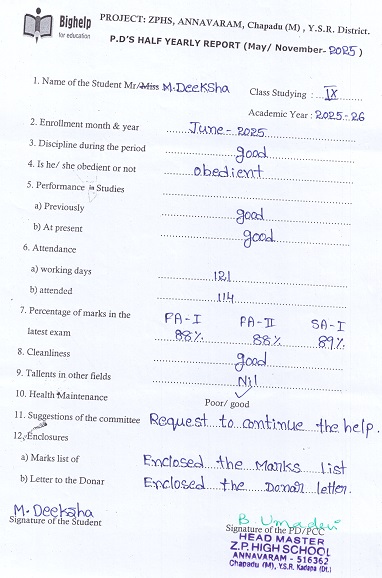 Bighelp
for education
PROJECT: ZPHS, ANNAVARAM, Chapadu (M) , Y.S.R. District.
P.D'S HALF YEARLY REPORT (May/ November- 2025 )
1. Name of the Student Mr/Miss M. Deeksha Class Studying : IX
Academic Year : 2025-26
2. Enrollment month & year June - 2025
3. Discipline during the period good
4. Is he/ she obedient or not obedient
5. Performance in Studies
a) Previously good
b) At present good
6. Attendance
a) working days 121
b) attended 114
7. Percentage of marks in the FA-I FA-II SA-I
latest exam 88% 88% 89%
8. Cleanliness good
9. Tallents in other fields Nil
10. Health Maintenance Poor/ good
11. Suggestions of the committee Request to continue the help.
12. Enclosures
a) Marks list of Enclosed the Marks list
b) Letter to the Donar Enclosed the Donar letter.
M. Deeksha B Umadevi
Signature of the Student Signature of the PD/PCC
HEAD MASTER
Z.P. HIGH SCHOOL
ANNAVARAM - 516362
Chapadu (M), Y.S.R. Kadapa (Dt.)